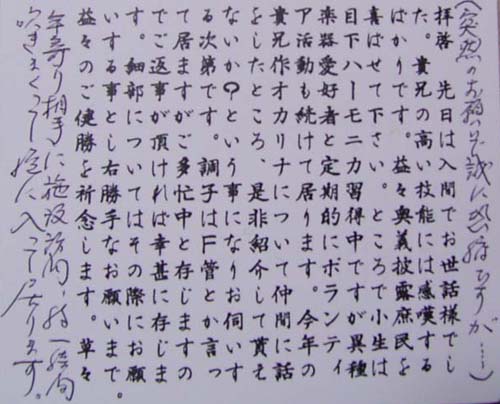 (突然のお願いで誠に恐縮ですが……)
拝啓　先日は入間でお世話様でし
た。貴兄の高い技能には感嘆する
ばかりです。益々奥義披露庶民を
喜ばせて下さい。ところで小生は
目下ハーモニカ習得中ですが異種
楽器愛好者と定期的にボランティ
ア活動も続けて居ります。今年の
貴兄作オカリナについて仲間に話
をしたところ、是非紹介して貰え
ないか？という事になりお伺いす
る次第です。調子はＦ管とか言っ
て居ますがご多忙中と存じますの
でご返事が頂ければ幸甚に存じま
す。細部についてはその際にお願
いする事とし右勝手なお願いまで。
益々のご健勝を祈念します。草々
年寄り相手に施設訪問
吹きまくって悦に入って居ります。